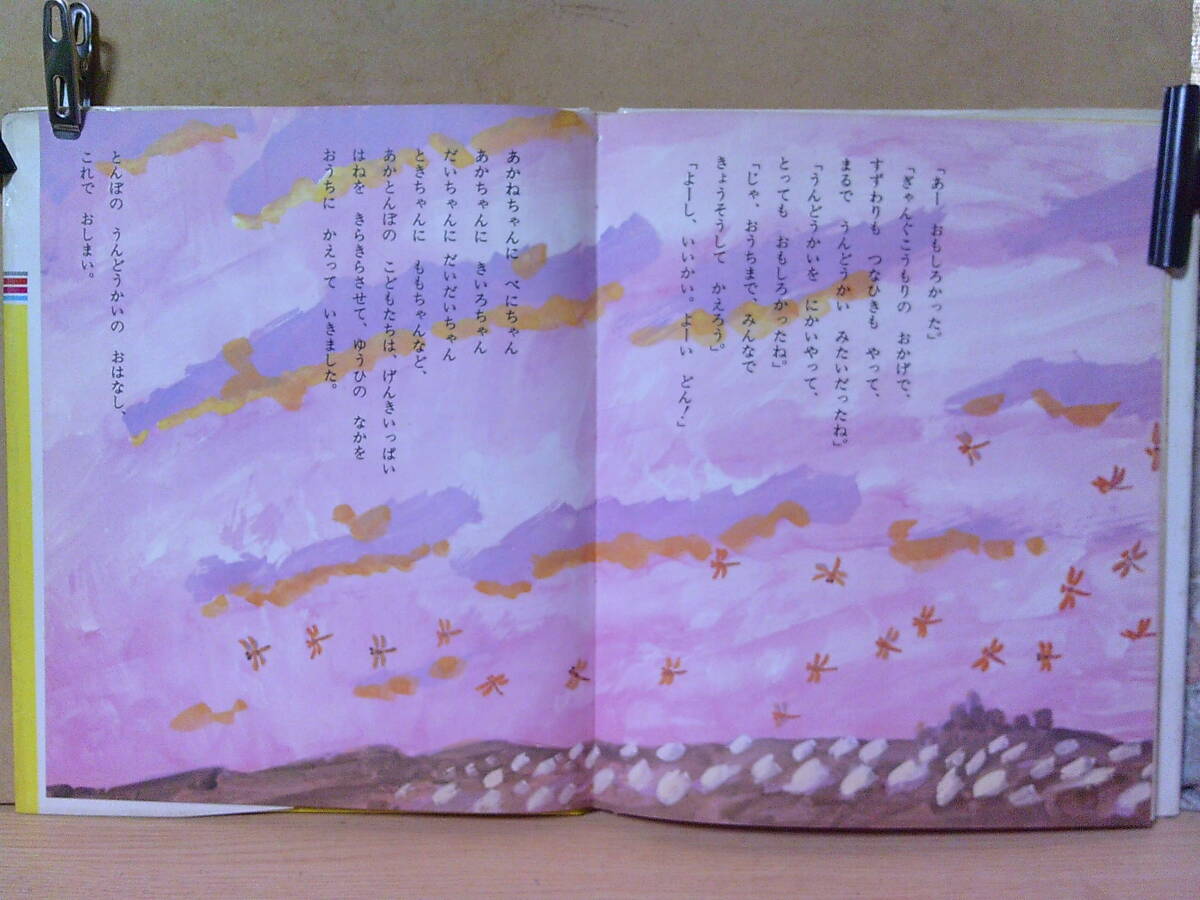 「あー　おもしろかった。」
「ぎゃんぐこうもりの　おかげで、
すずわりも　つなひきも　やって、
まるで　うんどうかい　みたいだったね。」
「うんどうかいを　にかいやって、
とっても　おもしろかったね。」
「じゃ、おうちまで、みんなで
きょうそうして　かえろう。」
「よーし、いいかい。よーい　どん！」
あかねちゃんに　べにちゃん
あかちゃんに　きいろちゃん
だいちゃんに　だいだいちゃん
ときちゃんに　ももちゃんなど、
あかとんぼの　こどもたちは、げんきいっぱい
はねを　きらきらさせて、ゆうひの　なかを
おうちに　かえって　いきました。
とんぼの　うんどうかいの　おはなし、
これで　おしまい。